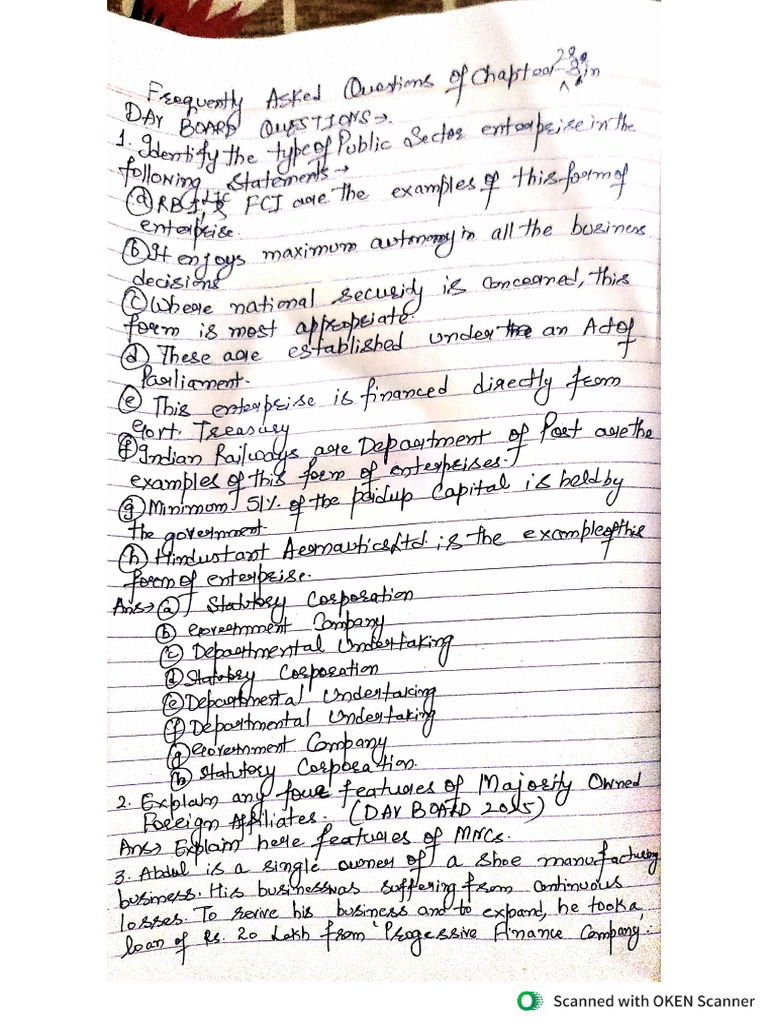 Frequently Asked Questions of Chapter 2 & 3 in
DAV BOARD QUESTIONS→.
1. Identify the type of Public Sector enterprise in the
following statements→
(a) RBI, FCI are the examples of this form of
enterprise.
(b) It enjoys maximum autonomy in all the business
decisions
(c) Where national security is concerned, this
form is most appropriate.
(d) These are established under an Act of
Parliament.
(e) This enterprise is financed directly from
Govt. Treasury
(f) Indian Railways are Department of Post are the
examples of this form of enterprises.
(g) Minimum 51% of the paidup Capital is held by
the government.
(h) Hindustant Aernautics Ltd. is the example of this
form of enterprise.
Ans→ (a) Statutory Corporation
(b) Government Company
(c) Departmental Undertaking
(d) Statutory Corporation
(e) Departmental Undertaking
(f) Departmental Undertaking
(g) Government Company
(h) Statutory Corporation.
2. Explain any four features of Majority Owned
Foreign Affiliates. (DAV BOARD 2015)
Ans→ Explain here features of MNCs.
3. Abdul is a single owner of a shoe manufacturing
business. His business was suffering from continuous
losses. To revive his business and to expand, he took a
loan of Rs. 20 Lakh from 'Progessive Finance Company'.
Scanned with OKEN Scanner